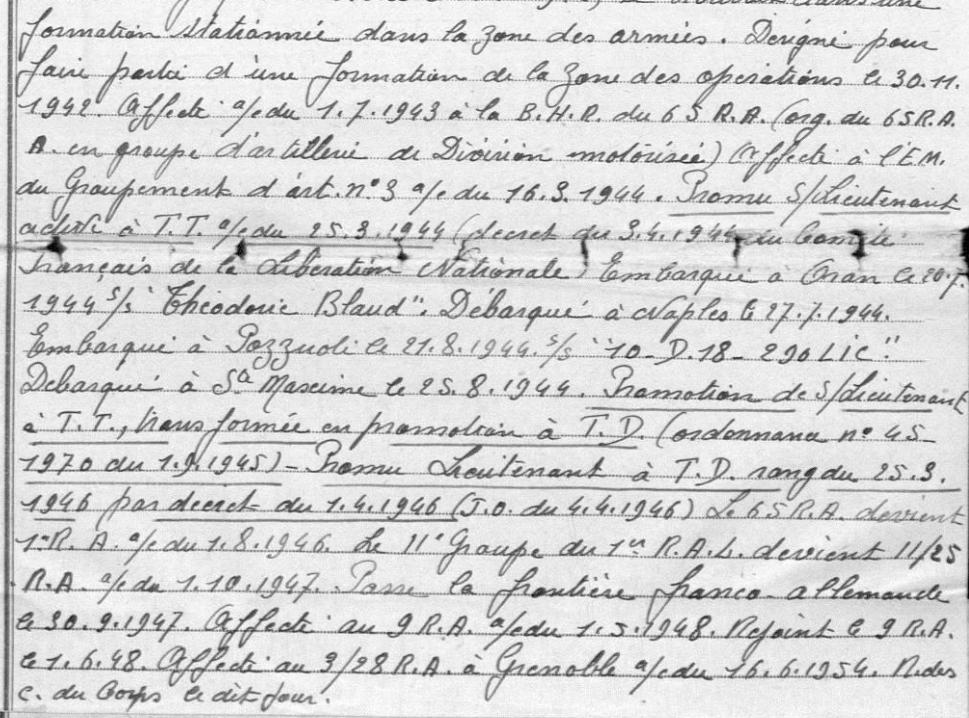 dans une
formation stationnée dans la zone des armées. Désigné pour
faire partie d'une formation de la zone des opérations le 30.11.
1942. Affecté a/c du 1.7.1943 à la B.H.R. du 65 R.A. (org. du 65 R.A.
A. en groupe d'artillerie de Division motorisée) Affecté à l'EM.
du Groupement d'art. n° 3 a/c du 16.3.1944. Promu S/Lieutenant
active à T.T. a/c du 25.3.1944 (décret du 3.4.1944 du Comité
Français de la Libération Nationale) Embarqué à Oran le 20.7.
1944 s/s "Théodoric Bland". Débarqué à Naples le 27.7.1944.
Embarqué à Pozzuoli le 21.8.1944. s/s "10-D.18-290 Lic"
Débarqué à Sª Maxime le 25.8.1944. Promotion de S/Lieutenant
à T.T., transformée en promotion à T.D. (ordonnance n° 45-
1970 du 1.9.1945) - Promu Lieutenant à T.D. rang du 25.3.
1946 par décret du 1.4.1946 (J.O. du 4.4.1946) Le 65 R.A. devient
1er R.A. a/c du 1.8.1946. Le II° Groupe du 1er R.A.L. devient II/25
R.A. a/c du 1.10.1947. Passe la frontière franco-allemande
le 30.9.1947. Affecté au 9 R.A. a/c du 1.5.1948. Rejoint le 9 R.A.
le 1.6.48. Affecté au 3/28 R.A. à Grenoble a/c du 16.6.1954. R. des
c. du Corps le dit jour.